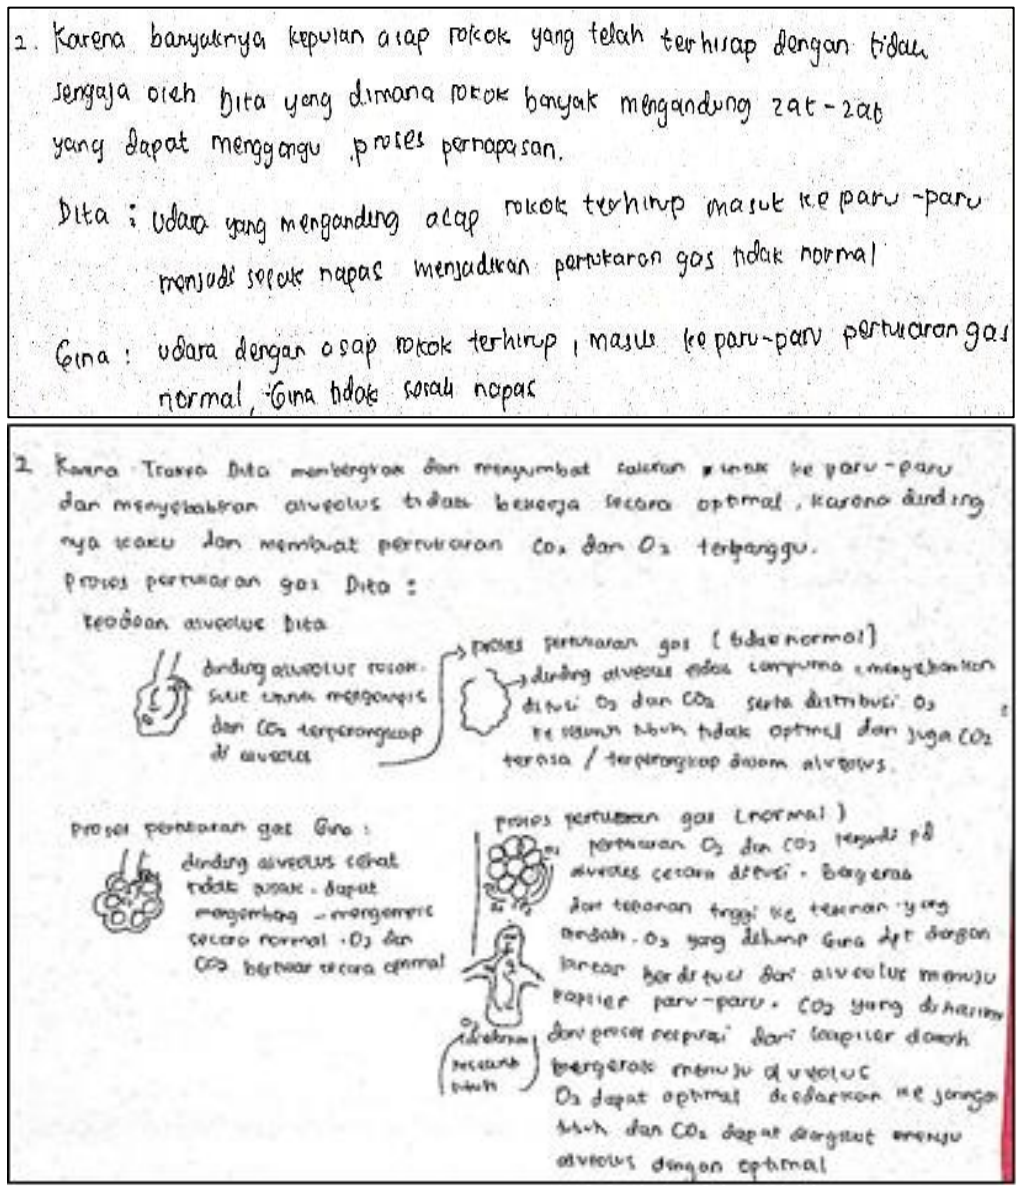 2. Karena banyaknya kepulan asap rokok yang telah terhisap dengan tidak
sengaja oleh Dita yang dimana rokok banyak mengandung zat-zat
yang dapat menggangu proses pernapasan.
Dita : Udara yang mengandung asap rokok terhirup masuk ke paru-paru
menjadi sesak napas menjadikan pertukaran gas tidak normal
Gina : udara dengan asap rokok terhirup, masuk ke paru-paru pertukaran gas
normal, Gina tidak sesak napas
2 Karena Trakea Dita membengkak dan menyumbat saluran masuk ke paru-paru
dan menyebabkan alveolus tidak bekerja secara optimal, karena dinding
nya kaku dan membuat pertukaran CO₂ dan O₂ terganggu.
Proses pertukaran gas Dita :
keadaan alveolus Dita
dinding alveolus rusak.
Sulit untuk mengempis
dan CO₂ terperangkap
di alveolus
proses pertukaran gas (tidak normal)
dinding alveolus tidak sempurna menyebabkan
difusi O₂ dan CO₂ serta distribusi O₂
ke seluruh tubuh tidak optimal dan juga CO₂
/ terperangkap dalam alveolus.
Proses pertukaran gas Gina :
dinding alveolus sehat
tidak rusak. dapat
mengembang - mengempis
secara normal. O₂ dan
CO₂ bertukar secara optimal
proses pertukaran gas (normal)
pertukaran O₂ dan CO₂ terjadi pd
alveolus secara difusi. Bergerak
dari tekanan tinggi ke tekanan yang
rendah. O₂ yang dihirup Gina dpt dengan
lancar berdifusi dari alveolus menuju
kapiler paru-paru. CO₂ yang dihasilkan
dari proses respirasi dari kapiler darah
bergerak menuju alveolus
O₂ dapat optimal diedarkan ke jaringan
tubuh dan CO₂ dapat diangkut menuju
alveolus dengan optimal
O₂
diedarkan
keseluruh
tubuh